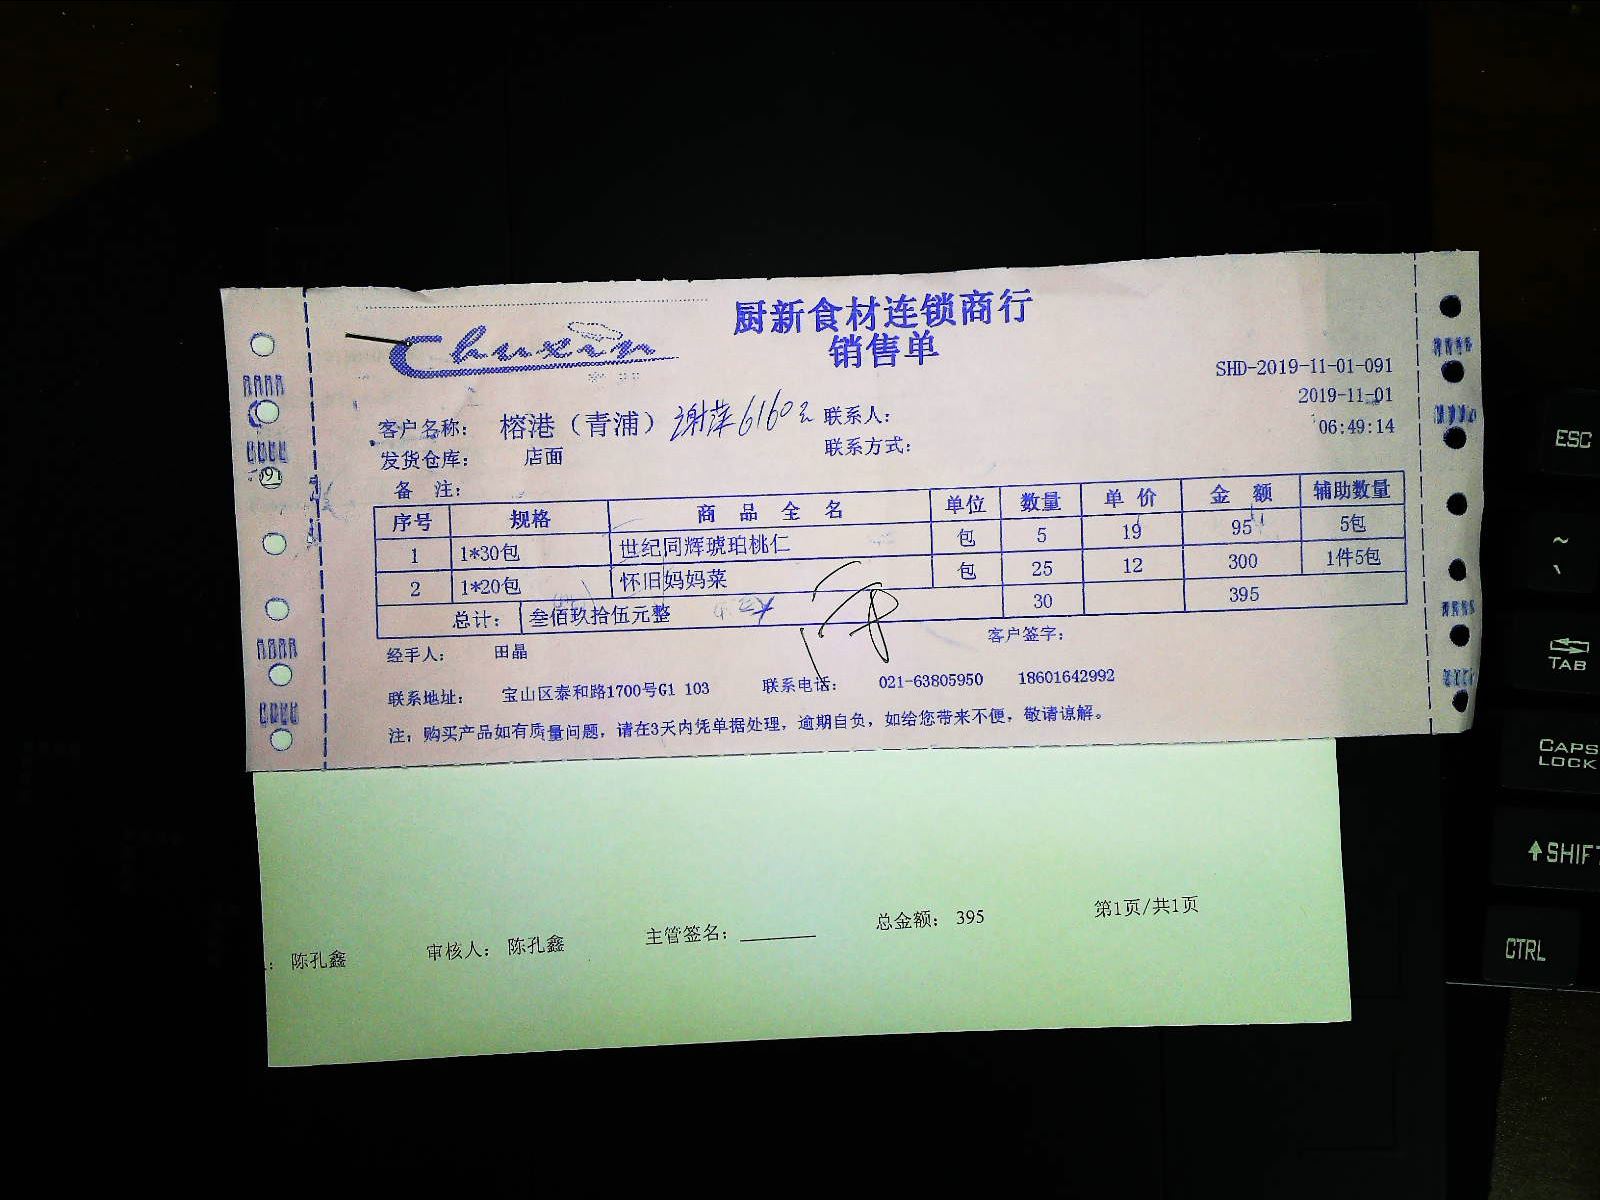 厨新食材连锁商行
Chuxin
销售单
SHD-2019-11-01-091
2019-11-01
客户名称： 榕港（青浦） 谢萍6160 联系人：
06:49:14
发货仓库： 店面 联系方式：
备 注：
序号 规格 商 品 全 名 单位 数量 单 价 金 额 辅助数量
1 1*30包 世纪同辉琥珀桃仁 包 5 19 95 5包
2 1*20包 怀旧妈妈菜 包 25 12 300 1件5包
总计： 叁佰玖拾伍元整 30 395
经手人： 田晶 客户签字：
联系地址： 宝山区泰和路1700号G1 103 联系电话： 021-63805950 18601642992
注：购买产品如有质量问题，请在3天内凭单据处理，逾期自负，如给您带来不便，敬请谅解。
：陈孔鑫 审核人：陈孔鑫 主管签名： 总金额：395 第1页/共1页
ESC
~
TAB
CAPS
LOCK
SHIFT
CTRL